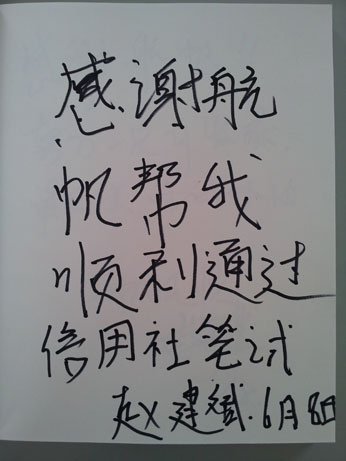 感谢航
帆帮我
顺利通过
信用社笔试
赵建斌.6月8日